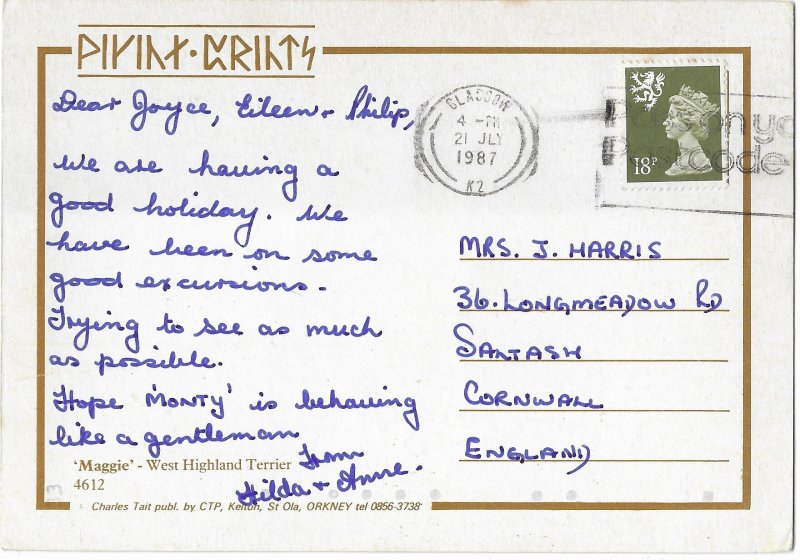 Dear Joyce, Eileen + Philip,
We are having a
good holiday. We
have been on some
good excursions.
Trying to see as much
as possible.
Hope 'MONTY' is behaving
like a gentleman
from
Hilda + Anne.
'Maggie' - West Highland Terrier
4612
Charles Tait publ. by CTP, Kelton, St Ola, ORKNEY tel 0856-3738
GLASGOW
4 - PM
21 JLY
1987
K2
18P
code
MRS. J. HARRIS
36. LONGMEADOW RD
SALTASH
CORNWALL
ENGLAND